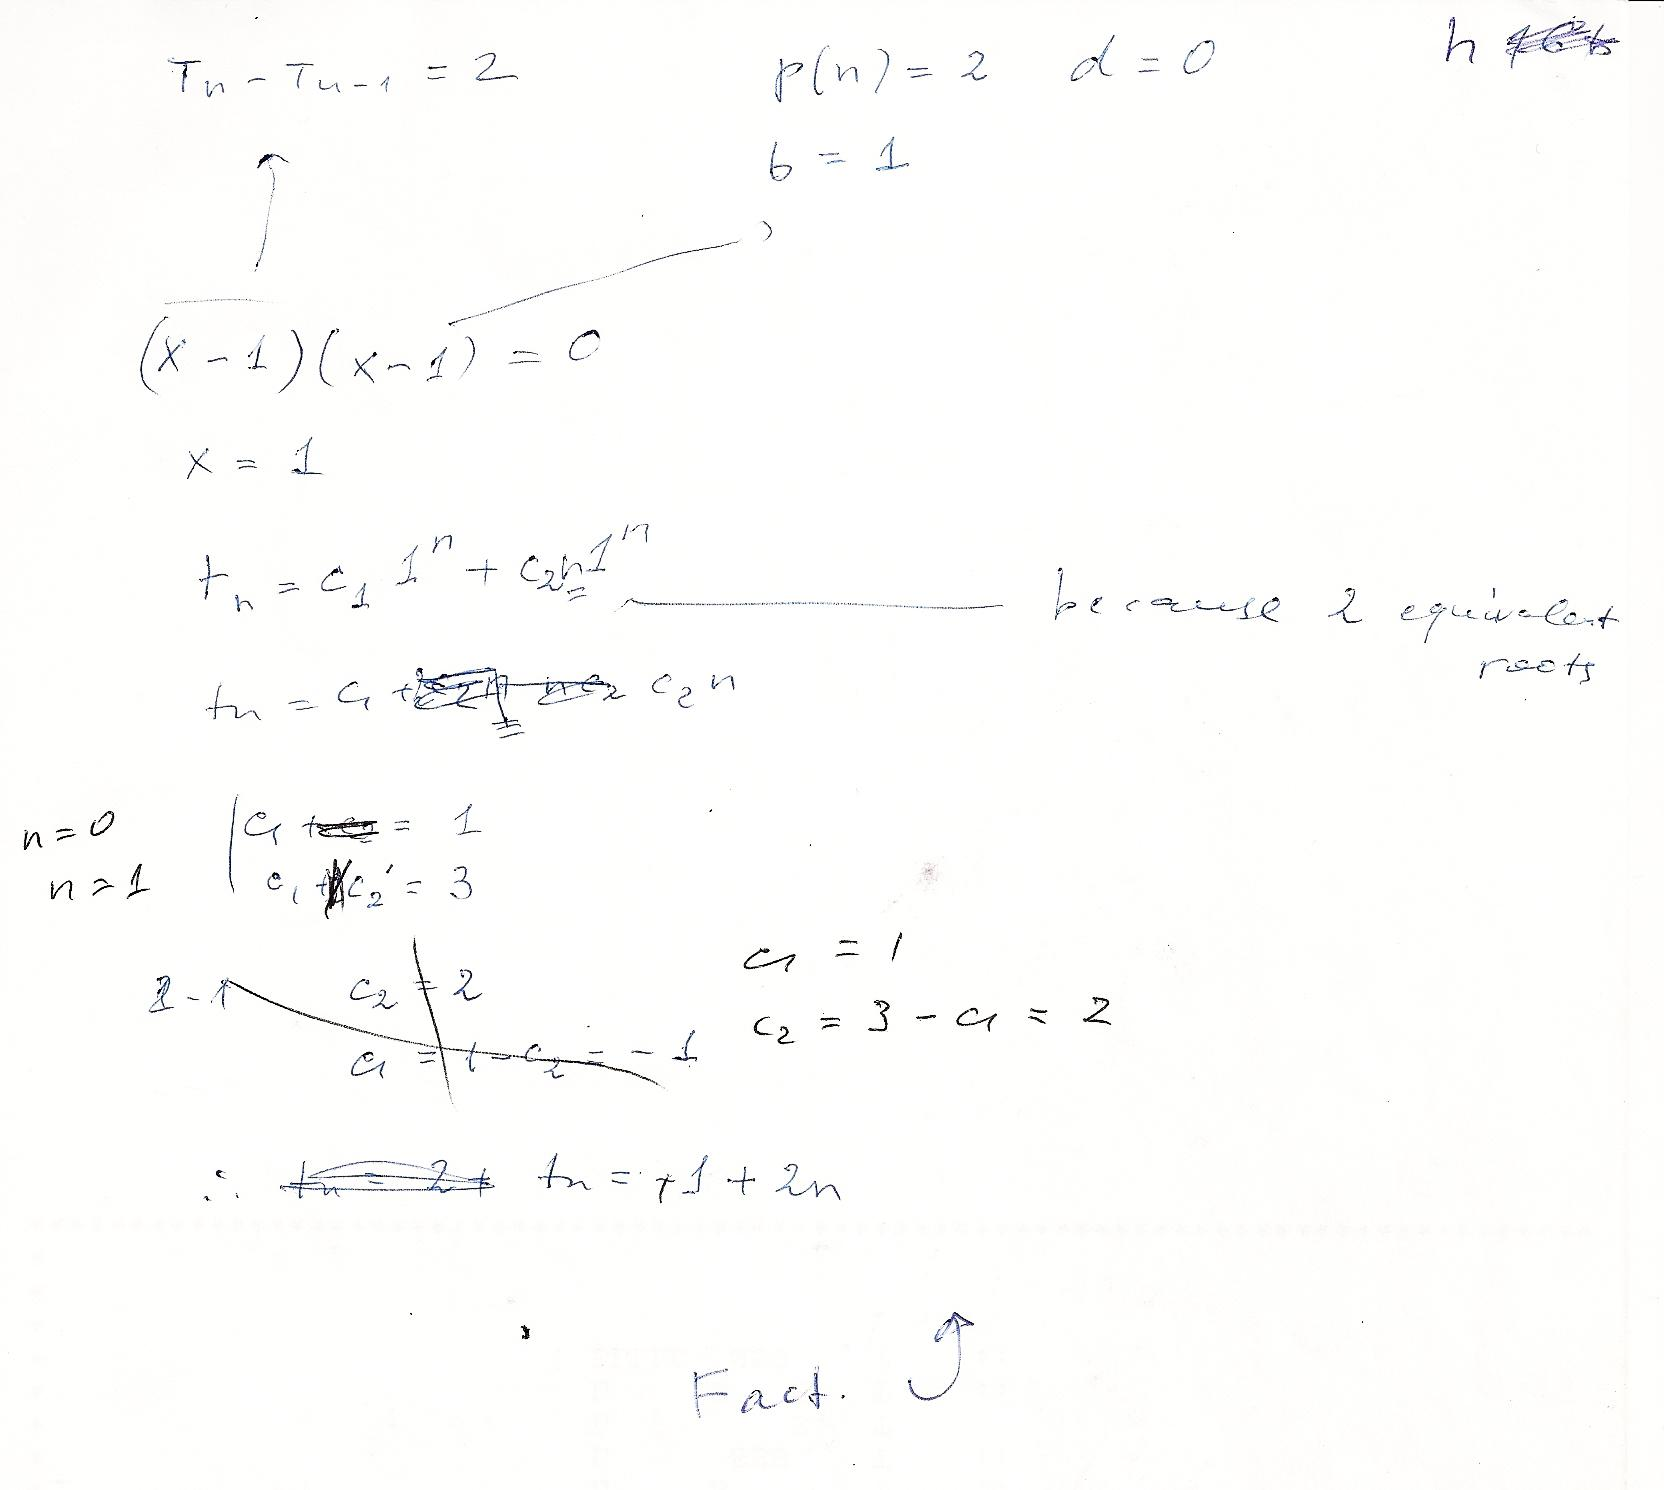 Tn - Tn-1 = 2 p(n) = 2 d = 0 h
b = 1
(x - 1)(x - 1) = 0
x = 1
tn = c1 1^n + c2n1^n because 2 equivalent
roots
tn = c1 + c2 n
n=0 c1 = 1
n=1 c1 + c2 = 3
2-1 c2 = 2 c1 = 1
c1 = 1 - c2 = -1 c2 = 3 - c1 = 2
∴ tn = +1 + 2n
Fact.